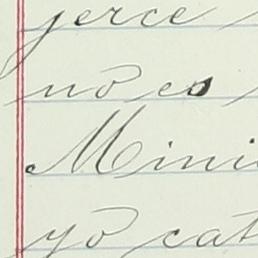 jerce
no es
Mini
yo cat